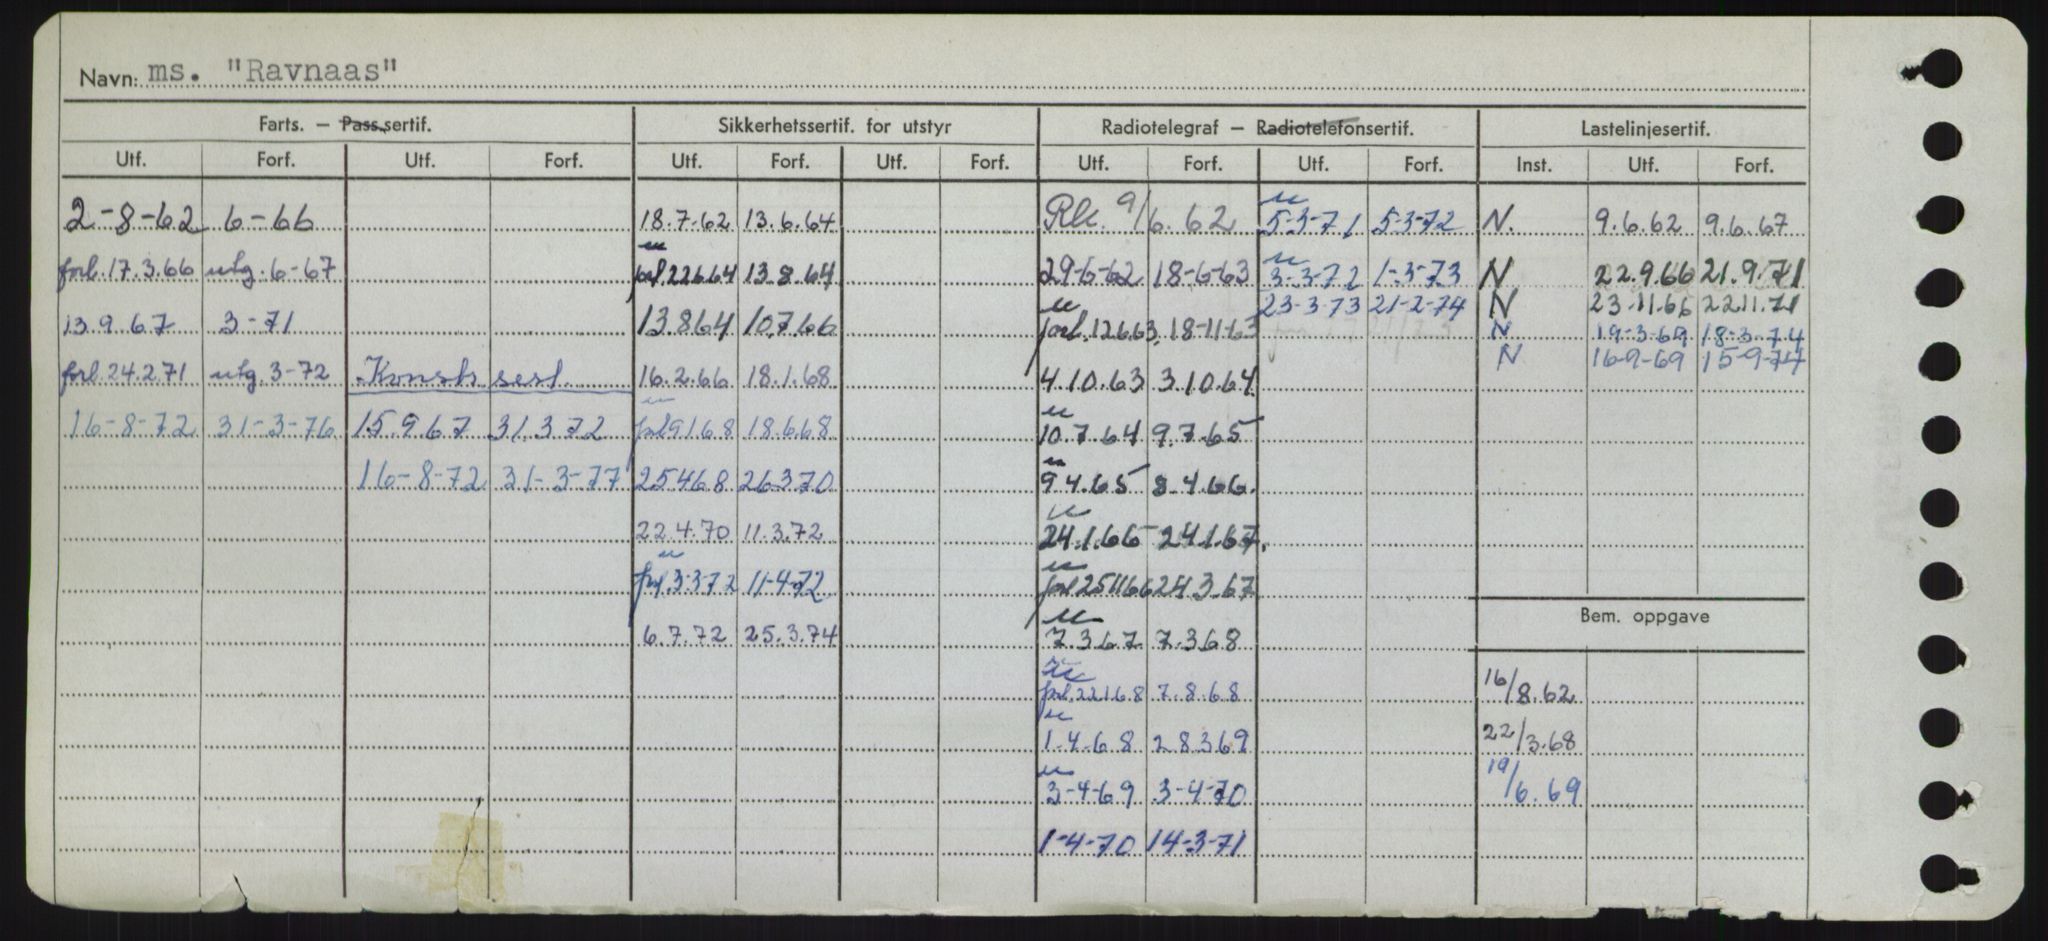 Navn: ms. "Ravnaas"
Farts. – Pass.sertif. Sikkerhetssertif. for utstyr Radiotelegraf – Radiotelefonsertif. Lastelinjesertif.
Utf. Forf. Utf. Forf. Utf. Forf. Utf. Forf. Utf. Forf. Utf. Forf. Inst. Utf. Forf.
2-8-62 6-66 18.7.62 13.6.64 9/6.62 5-3-71 5-3-72 N. 9.6.62 9.6.67
forl. 17.3.66 utg. 6-67 forl. 22.6.64 13.8.64 29-6-62 18-6-63 3-3-72 1-3-73 N 22.9.66 21.9.71
23-3-73 21-2-74 N 23.11.66 22.11.71
13.9.67 3-71 13.8.64 10.7.66 forl. 12.6.63 18-11-63 N 19-3-69 18-3-74
N 16-9-69 15-9-74
forl. 24.2.71 utg. 3-72 Konstr. sert. 16.2.66 18.1.68 4.10.63 3.10.64
16-8-72 31-3-76 15.9.67 31.3.72 forl 9.1.68 18.6.68 10.7.64 9.7.65
16-8-72 31-3-77 25.4.68 26.3.70 9.4.65 8.4.66.
22.4.70 11.3.72 24.1.66 24.1.67.
forl. 3-3-72 11-4-72 forl 25.11.66 24.3.67
Bem. oppgave
6.7.72 25.3.74 7.3.67 7.3.68
forl. 22.1.68 7.8.68 16/8.62
1-4-68 28.3.69 22/3.68
3-4-69 3-4-70 19/6.69
1-4-70 14-3-71